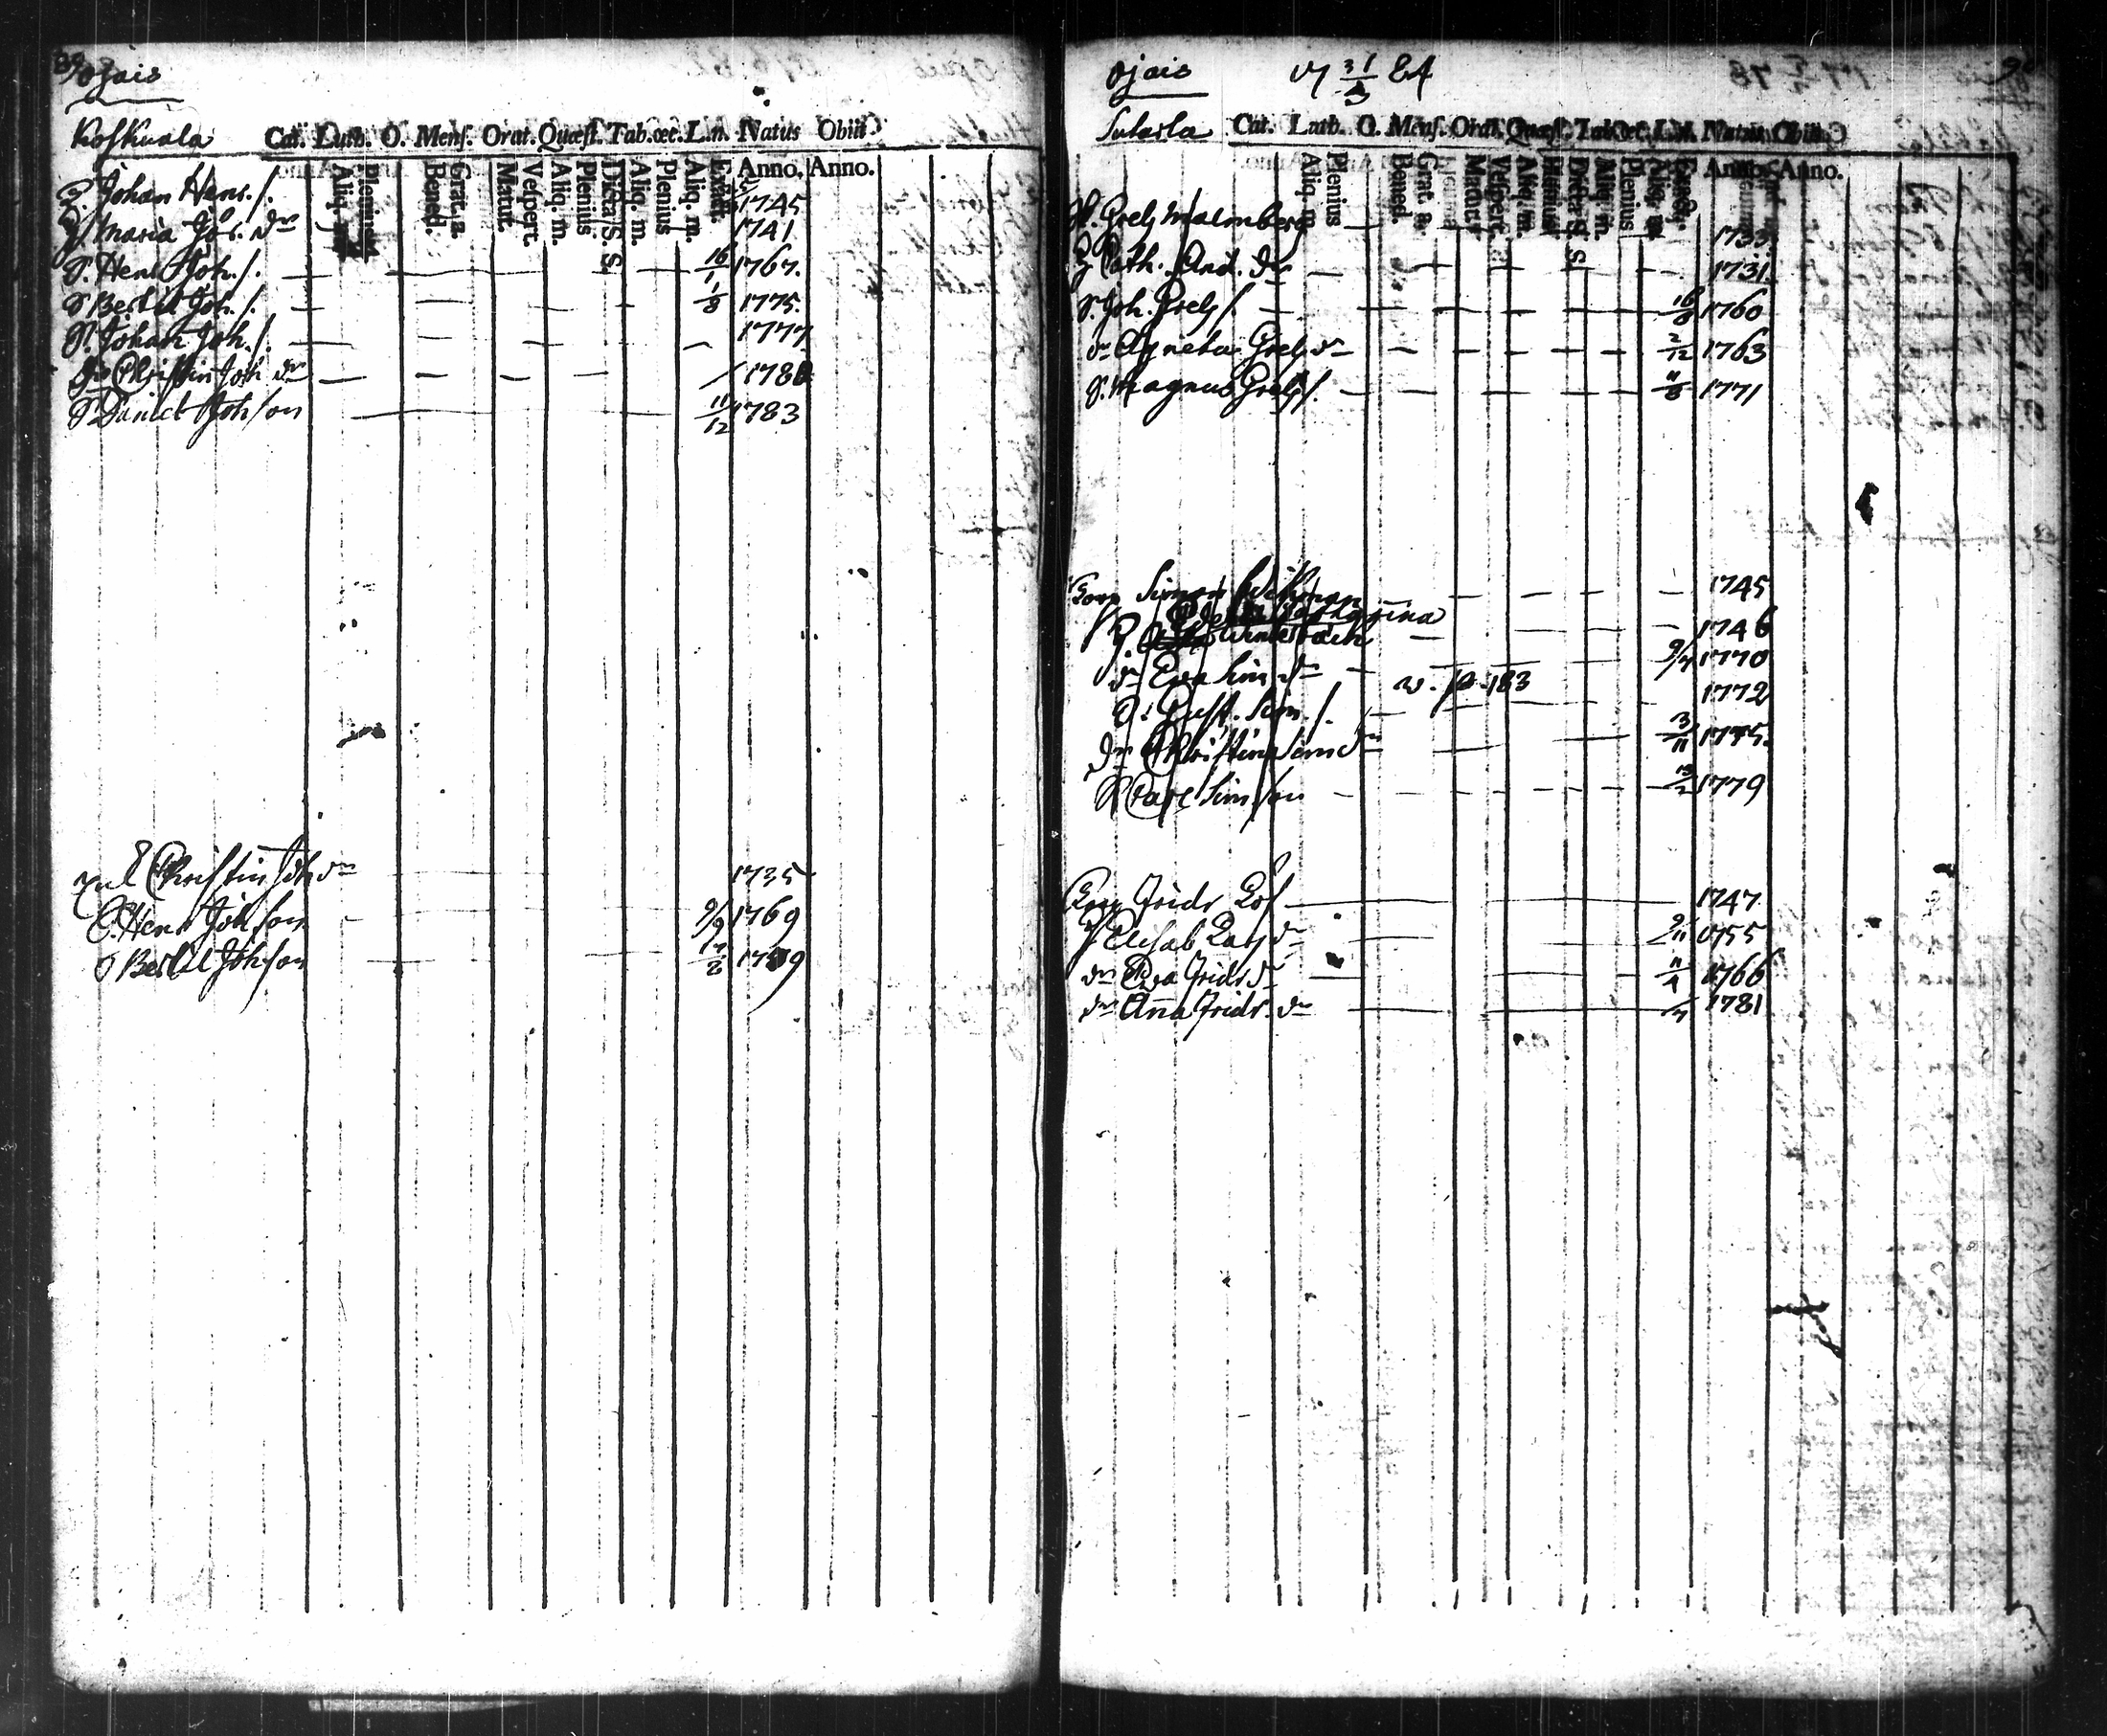 Ojais
Koskuala
Cat. Luth. O. Mens. Orat. Quæst. Tab. œc. L.n. Natus Obiit
Aliq. m. Plenius Bened. Grat. a. Matut. Vespert. Aliq. m. Plenius Dicta S. S. Aliq. m. Plenius Aliq. m. Exact. Anno. Anno.
Johan Henr. s. 1745
Maria Joh. dr 1741
S. Henr Joh. s. 16/1 1767.
S Bertil Joh. s. 1/8 1775.
S. Johan Joh. s. 1777
dr Christin Joh dr 178
S Daniel Johson 11/12 1783
E Christin Joh dr 1735
S. Henr Johson 9/9 1769
S Bertil Johson 17 9
Ojais 17 31/3 84
Sutarla
Cat. Luth. O. Mens. Orat. Quæst. Tab. œc. L.n. Natus Obiit
Aliq. m. Plenius Bened. Grat. a. Matut. Vespert. Aliq. m. Plenius Dicta S. S. Aliq. m. Plenius Aliq. m. Exact. Anno. Anno.
Grels Malmberg 1733
Cath. And. dr 1731.
S. Joh. Grels s. 1760
dr Agneta Grels dr 2/12 1763
S. Magnus Grels s. 11/8 1771
Corp Simon Wikman 1745
Catharina
1746
dr Eva Sim dr 9/4 1770
v. p. 183
S. Gust. Sim. s. 1772
dr Christin Sim dr 3/11 1775.
S Carl Simson 1779
Corp Fridr Löf 1747
Elisab Lars dr 1755
dr Eva Fridr dr 1766
dr Anna Fridr. dr 1781